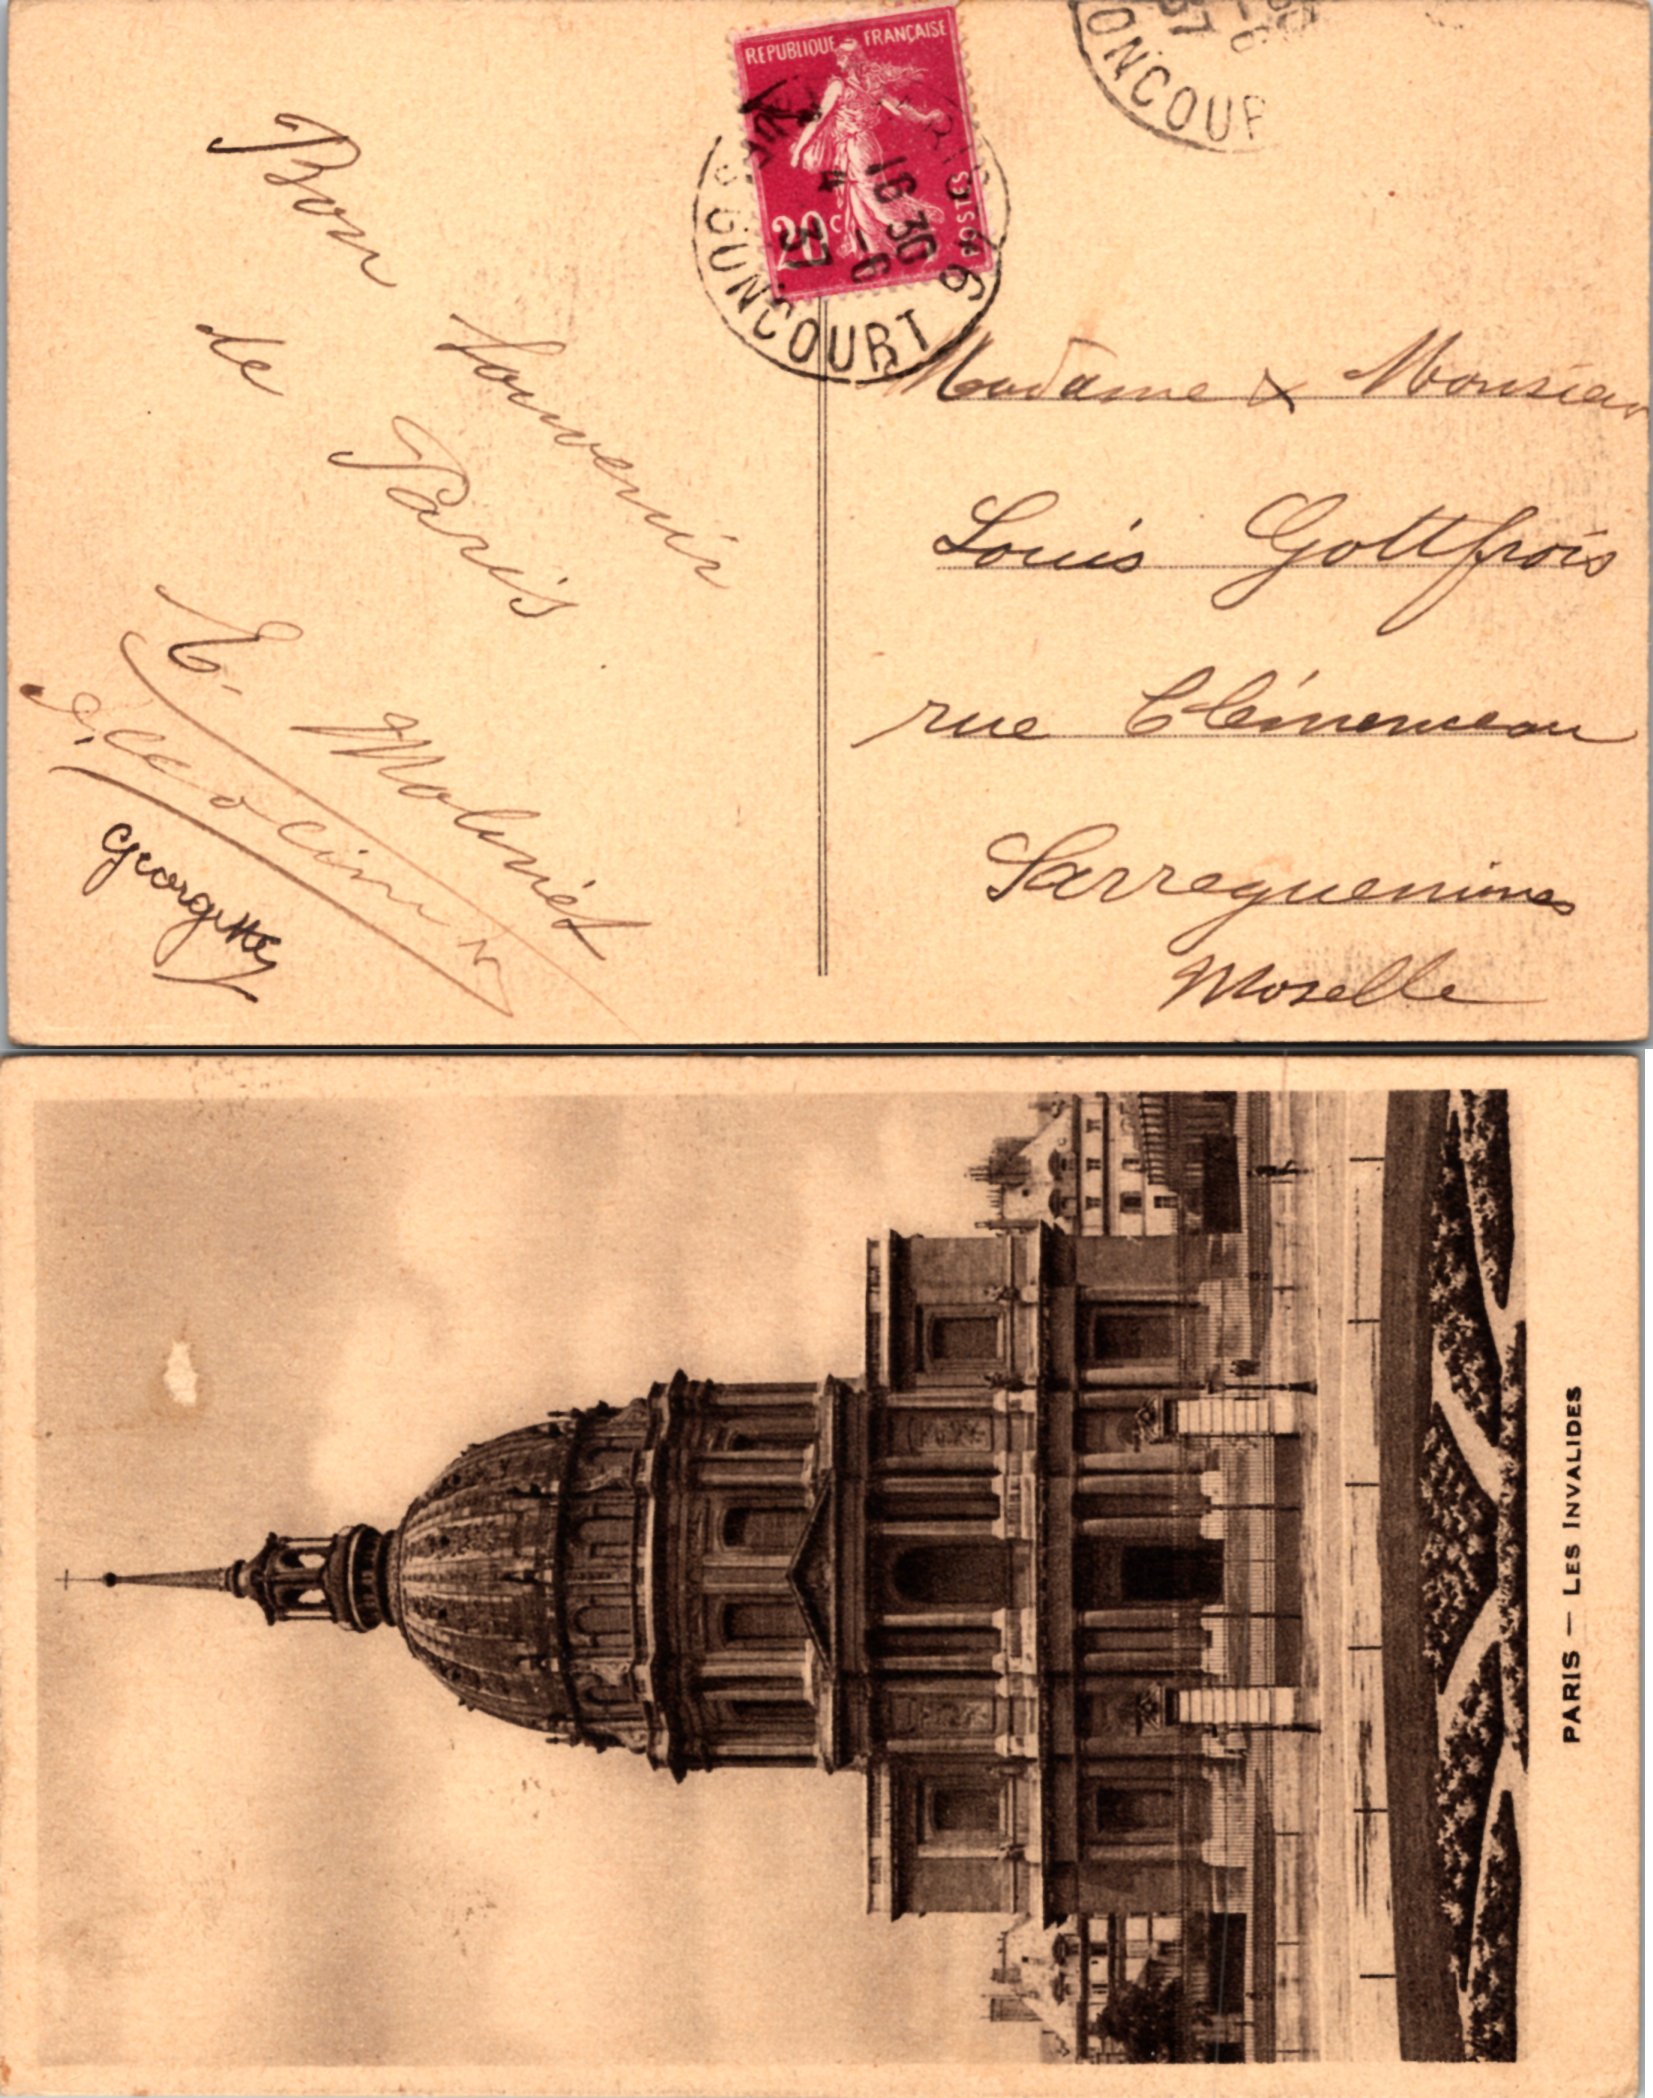 REPUBLIQUE FRANÇAISE
POSTES
20c
16 30
4 -6
37
GONCOURT
37
-6
ONCOUR
Bon
Souvenir
de
Paris
E. Molinét
Georgette
Madame & Monsieur
Louis Gottfrois
rue Clémenceau
Sarreguemines
Moselle
PARIS — LES INVALIDES